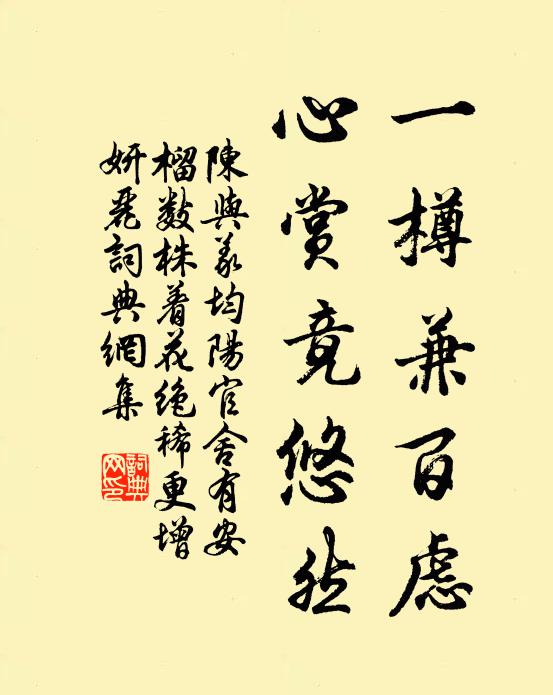 一樽兼百慮
心賞竟悠然
陳與義均陽官舍有安
榴數株着花絶稀更增
妍麗詞典網集
詞典
网印